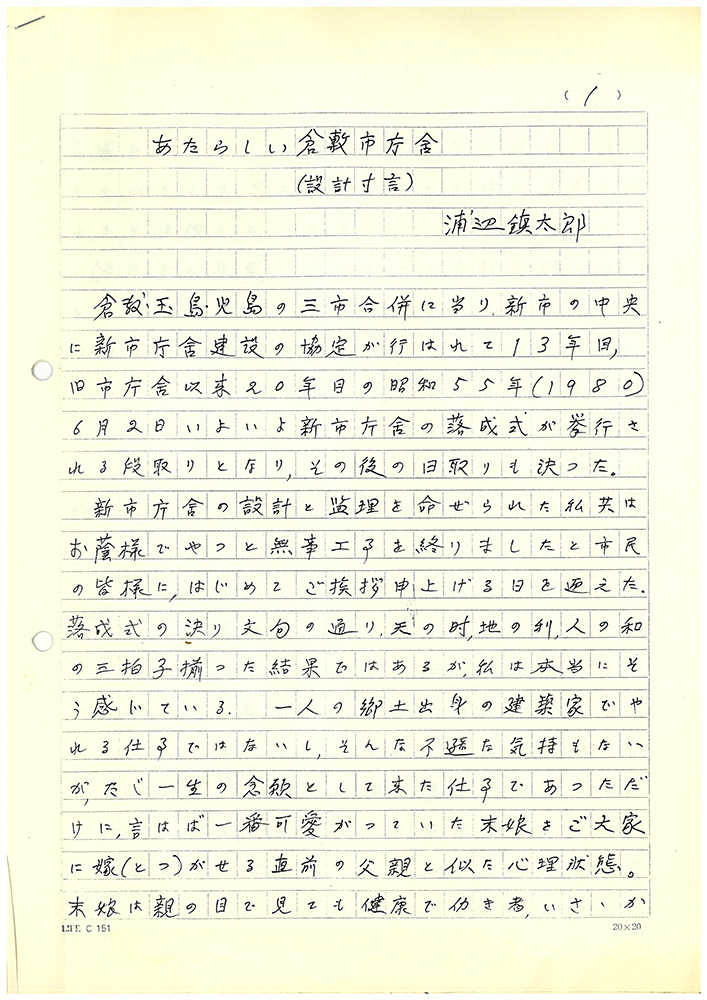 (1)
あたらしい倉敷市庁舎
(設計寸言)
浦辺鎮太郎
倉敷・玉島・児島の三市合併に当り、新市の中央
に新市庁舎建設の協定が行はれて13年目,
旧市庁舎以来20年目の昭和55年(1980)
6月2日いよいよ新市庁舎の落成式が挙行さ
れる段取りとなり,その後の日取りも決った。
新市庁舎の設計と監理を命ぜられた私共は
お蔭様でやっと無事工事を終りましたと市民
の皆様に,はじめてご挨拶申上げる日を迎えた.
落成式の決り文句の通り,天の時,地の利,人の和
の三拍子揃った結果ではあるが,私は本当にそ
う感じている. 一人の郷土出身の建築家でや
れる仕事ではないし,そんな不遜な気持もない
が,たゞ一生の念願として来た仕事であっただ
けに,言はば一番可愛がっていた末娘をご大家
に嫁(とつ)がせる直前の父親と似た心理状態。
末娘は親の目で見ても健康で働き者,いささか
LIFE C 151
20×20